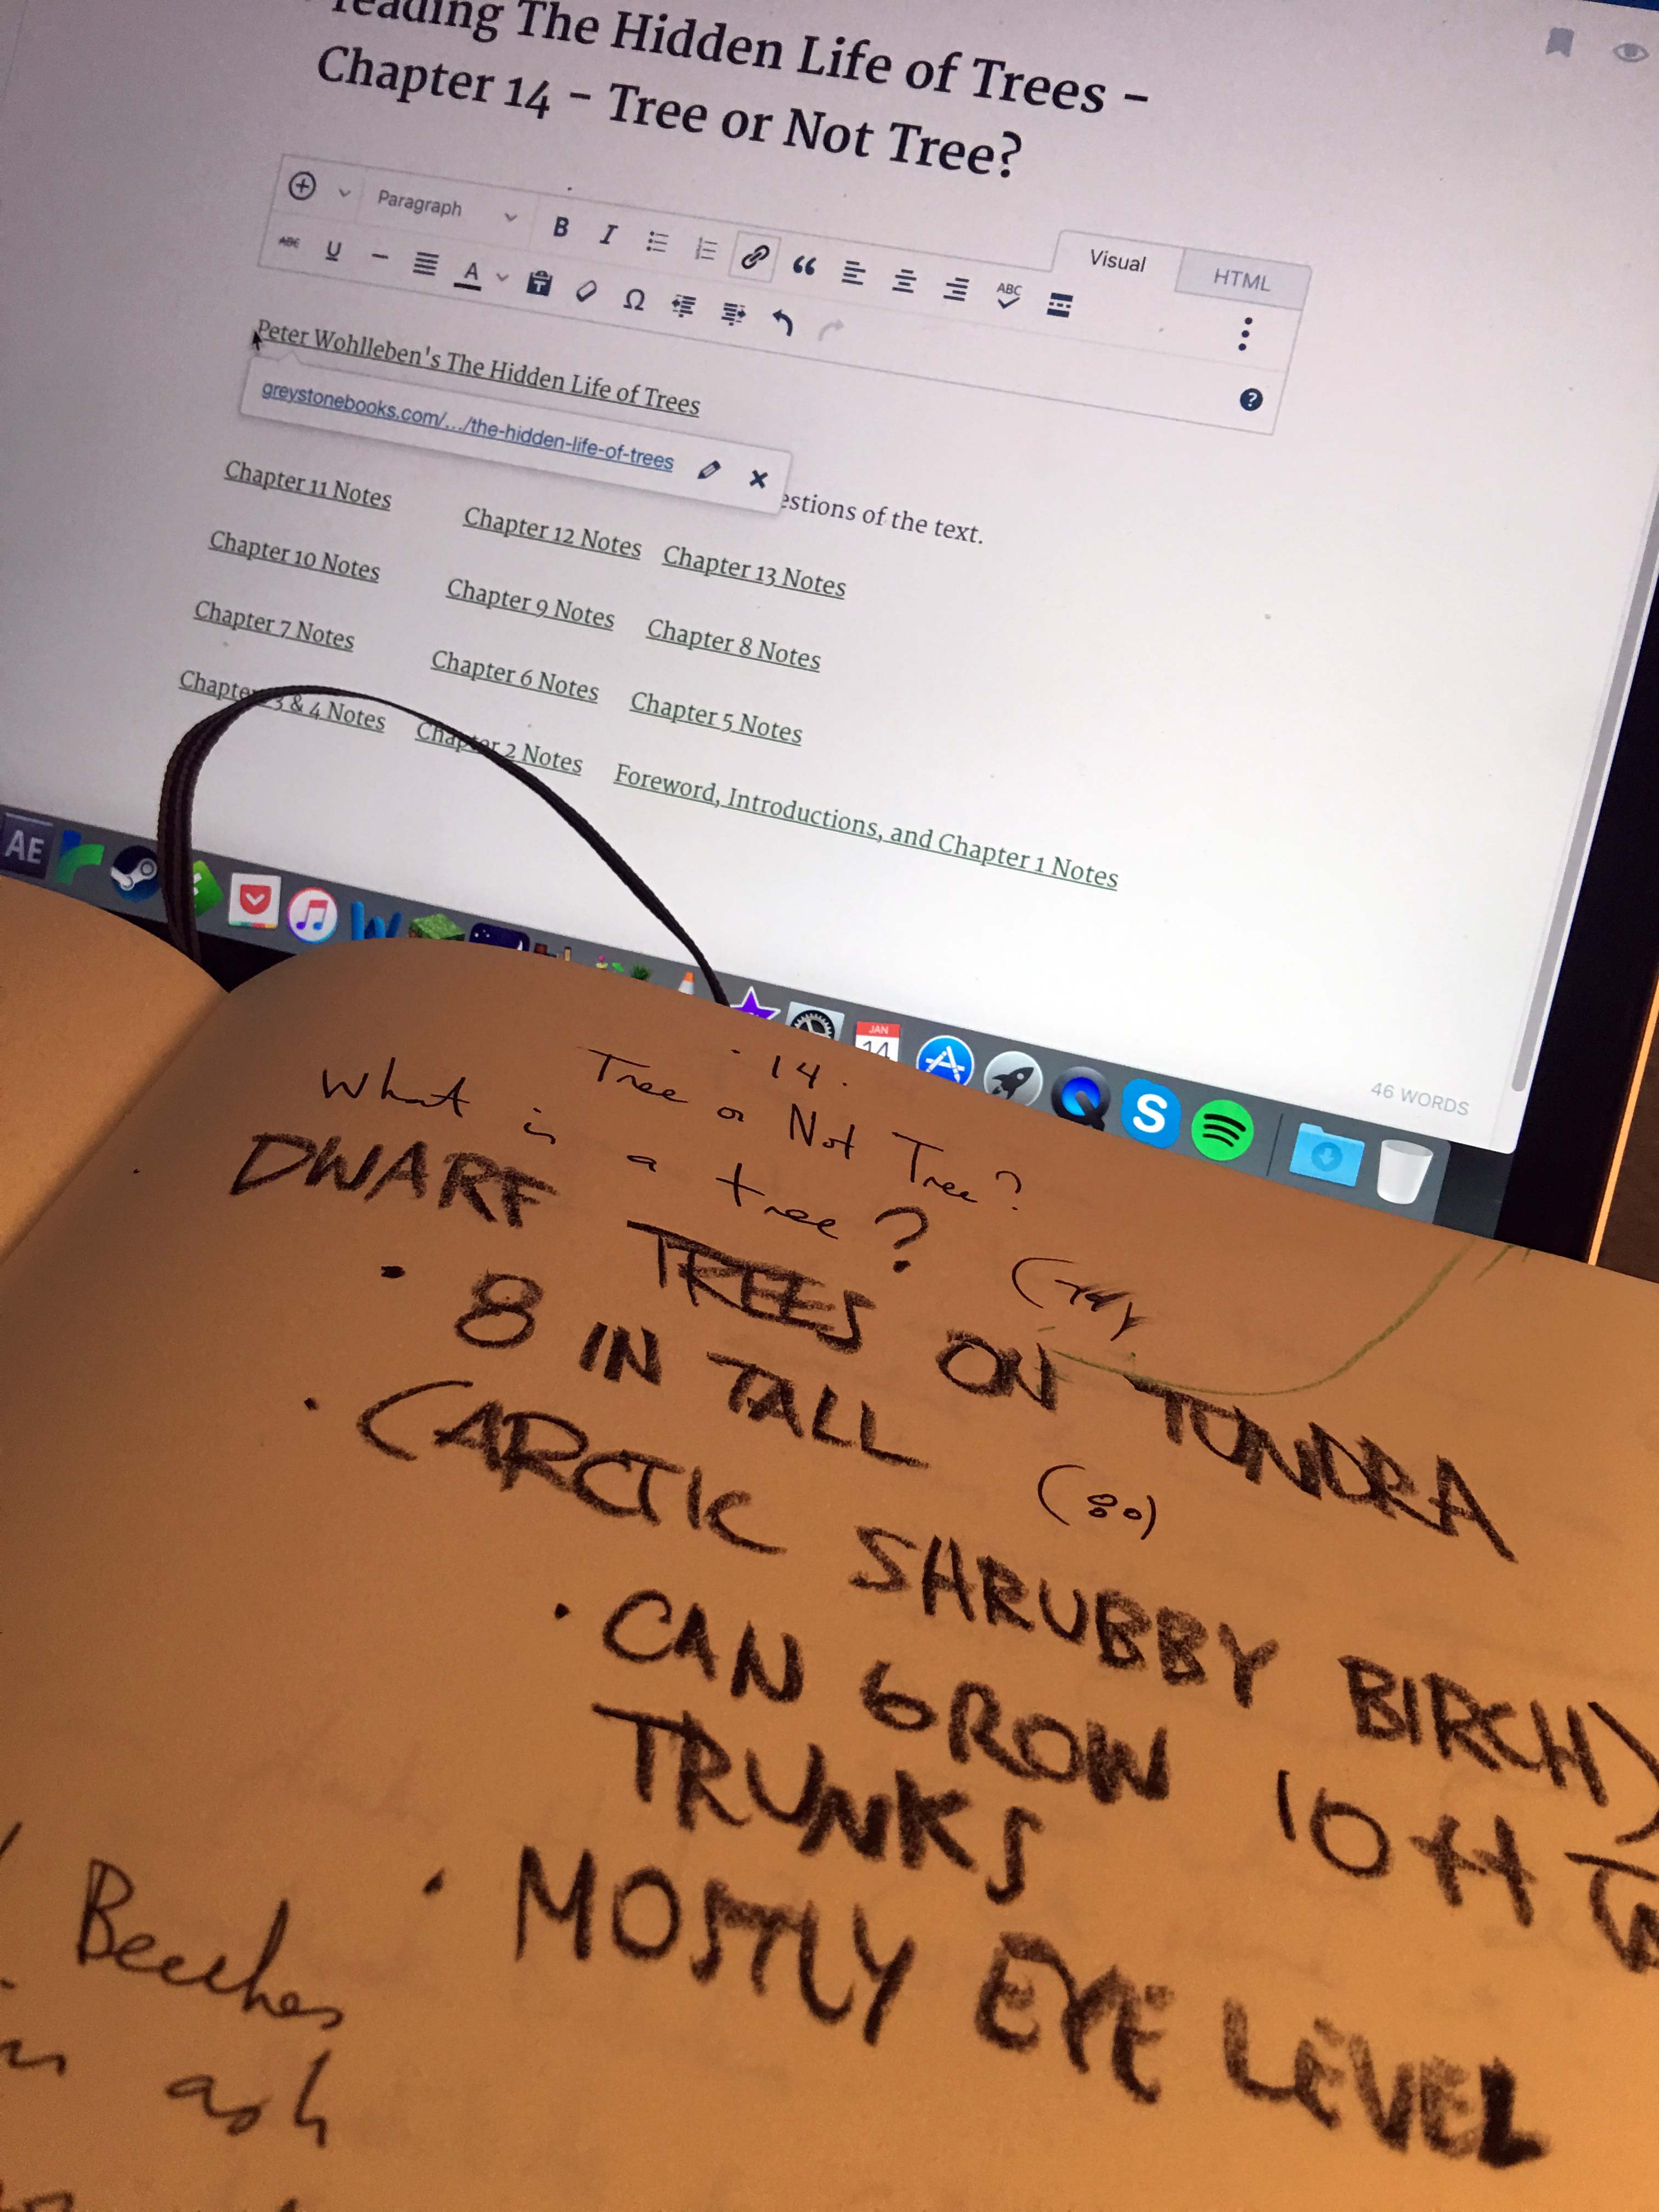 reading The Hidden Life of Trees -
Chapter 14 - Tree or Not Tree?
Paragraph
B I ABC
Visual HTML
ABC U A T Ω
Peter Wohlleben's The Hidden Life of Trees
greystonebooks.com/.../the-hidden-life-of-trees
estions of the text.
Chapter 11 Notes Chapter 12 Notes Chapter 13 Notes
Chapter 10 Notes Chapter 9 Notes Chapter 8 Notes
Chapter 7 Notes Chapter 6 Notes Chapter 5 Notes
Chapter 3 & 4 Notes Chapter 2 Notes Foreword, Introductions, and Chapter 1 Notes
46 WORDS
AE
JAN
14
S
14.
Tree or Not Tree?
What is a tree?
DWARF TREES ON TUNDRA
· 8 IN TALL (80)
· (ARCTIC SHRUBBY BIRCH)
· CAN GROW 10 ft
TRUNKS
· MOSTLY EYE LEVEL
Beeches
ash